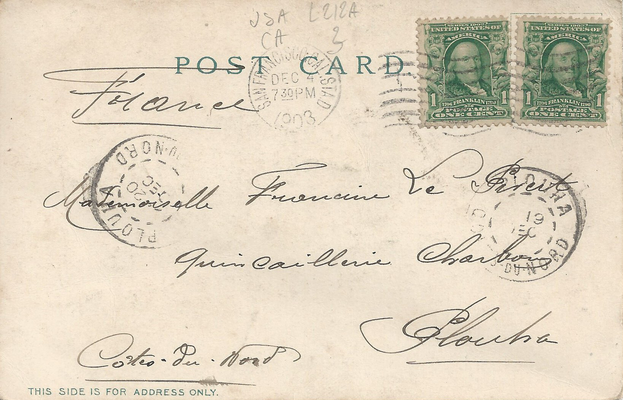 USA L212A
CA 3
POST CARD
SAN FRANCISCO, CAL. STA. D
DEC 4
7 30 PM
1903
UNITED STATES OF AMERICA
FRANKLIN
POSTAGE
1 ONE CENT 1
UNITED STATES OF AMERICA
FRANKLIN
POSTAGE
1 ONE CENT 1
France
PLOUHA
DU-NORD
DEC
03
Mademoiselle Francine Le
PLOUHA
19
DEC
DU-NORD
quincaillerie Charbon
Plouha
Côtes-du-Nord
THIS SIDE IS FOR ADDRESS ONLY.